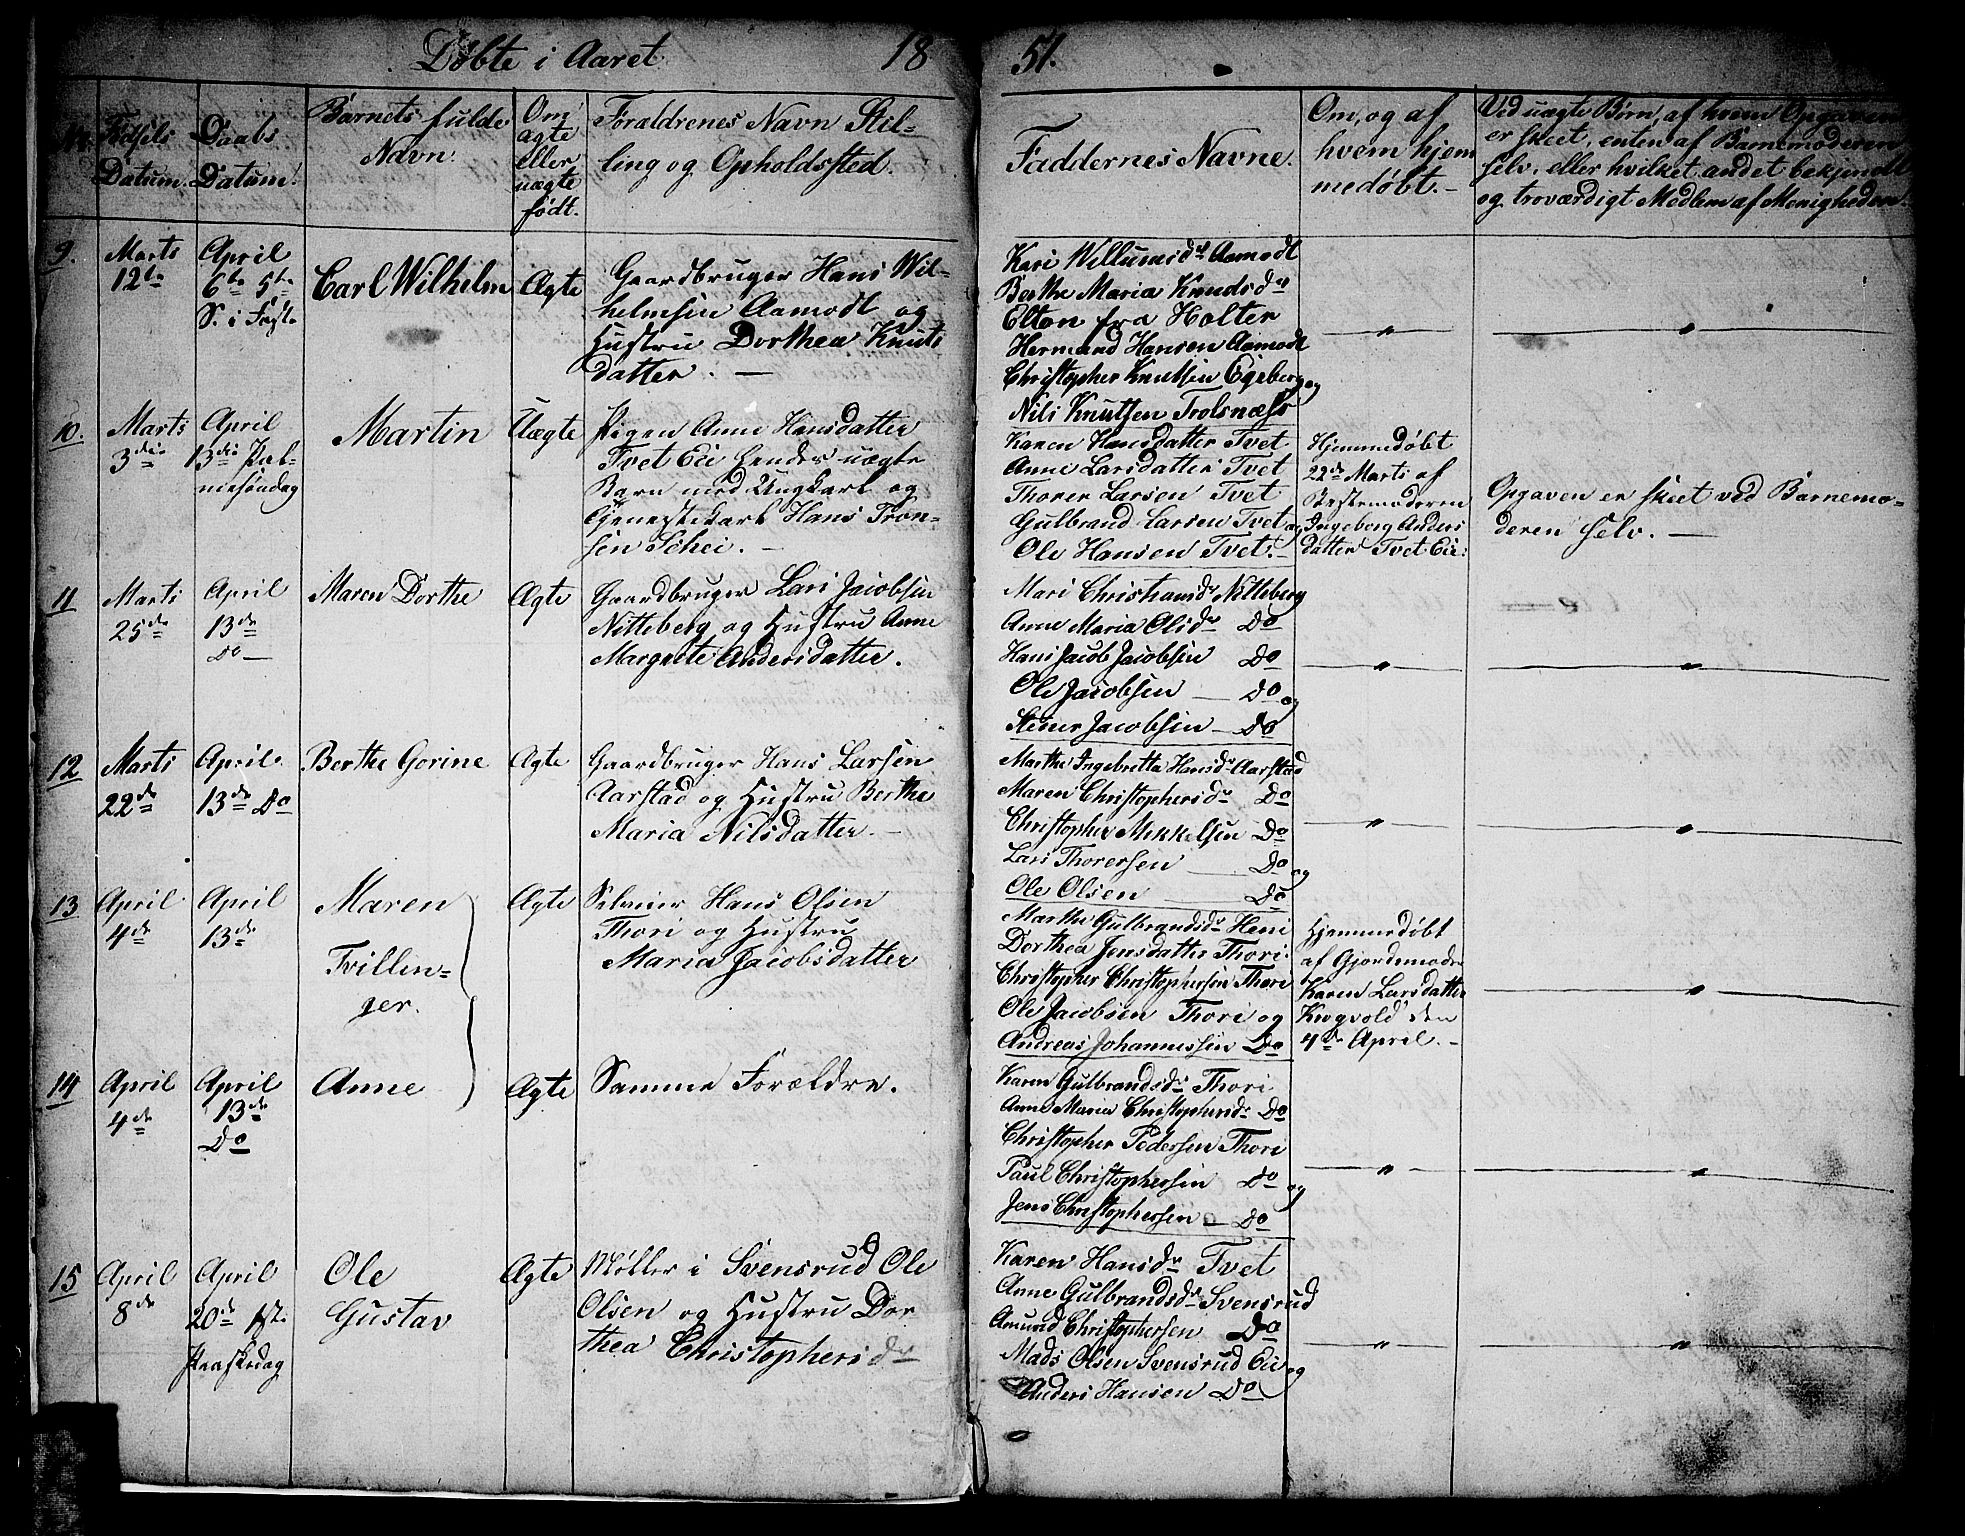 Døbte i Aaret 18 51.
No. Fødsels Datum.
Daabs Datum.
Barnets fulde Navn.
Om ægte eller uægte født.
Forældrenes Navn Stilling og Opholdssted.
Faddernes Navne.
Om, og af hvem hjemmedøbt.
Ved uægte Børn, af hvem Opgaven
er skeet, enten af Barnemoderen
selv, eller hvilket andet bekjendt
og troværdigt Medlem af Menigheden.
9. Marts 12te
April 6te 5te S. i Faste
Carl Wilhelm
Ægte
Gaardbruger Hans Wil-
helmsen Aamodt og
Hustru Dorthea Knuts
datter. —
Kari Willumsdr Aamodt
Berthe Maria Knudsdr
Elton fra Holter
Hermand Hansen Aamodt
Christopher Knutsen Egeberg og
Nils Knutsen Trolsnæss
"
"
10. Marts 3die
April 13de Pal-
mesøndag
Martin
Uægte
Pigen Anne Hansdatter
Tvet Eie hendes uægte
Barn med Ungkarl og
Tjenestekarl Hans Tron-
sen Schei. —
Karen Hansdatter Tvet
Anne Larsdatter Tvet
Thorer Larsen Tvet
Gulbrand Larsen Tvet og
Ole Hansen Tvet. —
Hjemmedøbt
22de Marts af
Bestemoderen
Ingeborg Anders
datter Tvet Eie.
Opgaven er skeet ved Barnemo-
deren selv. —
11 Marts 25de
April 13de Do —
Maren Dorthe
Ægte
Gaardbruger Lars Jacobsen
Nitteberg og Hustru Anne
Margrete Andersdatter.
Mari Christiansdr Nitteberg
Anne Maria Olsdr Do
Hans Jacob Jacobsen Do
Ole Jacobsen — Do og
Stener Jacobsen — Do
"
"
12 Marts 22de
April 13de Do
Berthe Gorine
Ægte
Gaardbruger Hans Larsen
Aarstad og Hustru Berthe
Maria Nilsdatter. —
Marthe Ingebretta Hansdr Aarstad
Maren Christophersdr Do
Christopher Mikkelsen Do
Lars Thorersen — Do og
Ole Olsen — Do
"
"
13 April 4de
April 13de
Maren
Tvillen-
ger.
Ægte
Selveier Hans Olsen
Thori og Hustru
Maria Jacobsdatter
Marthe Gulbrandsdr Heni
Dorthea Jensdatter Thori
Christopher Christophersen Thori
Ole Jacobsen Thori og
Andreas Johannessen Do
Hjemmedøbt
af Gjordemoder
Karen Larsdatter
Krogvold den
4de April. —
"
14 April 4de
April 13de Do
Anne
Ægte
Samme Forældre.
Karen Gulbrandsdr Thori
Anne Maria Christophersdr Do
Christopher Pedersen Thori
Paul Christophersen Do og
Jens Christophersen — Do
"
"
15 April 8de
April 20de 1ste
Paaskedag
Ole
Gustav
Ægte
Møller i Svensrud Ole
Olsen og Hustru Dor-
thea Christophersdr
Karen Hansdr Tvet
Anne Gulbrandsdr Svensrud
Amund Christophersen Do
Mads Olsen Svensrud Eie og
Anders Hansen Do
"
"